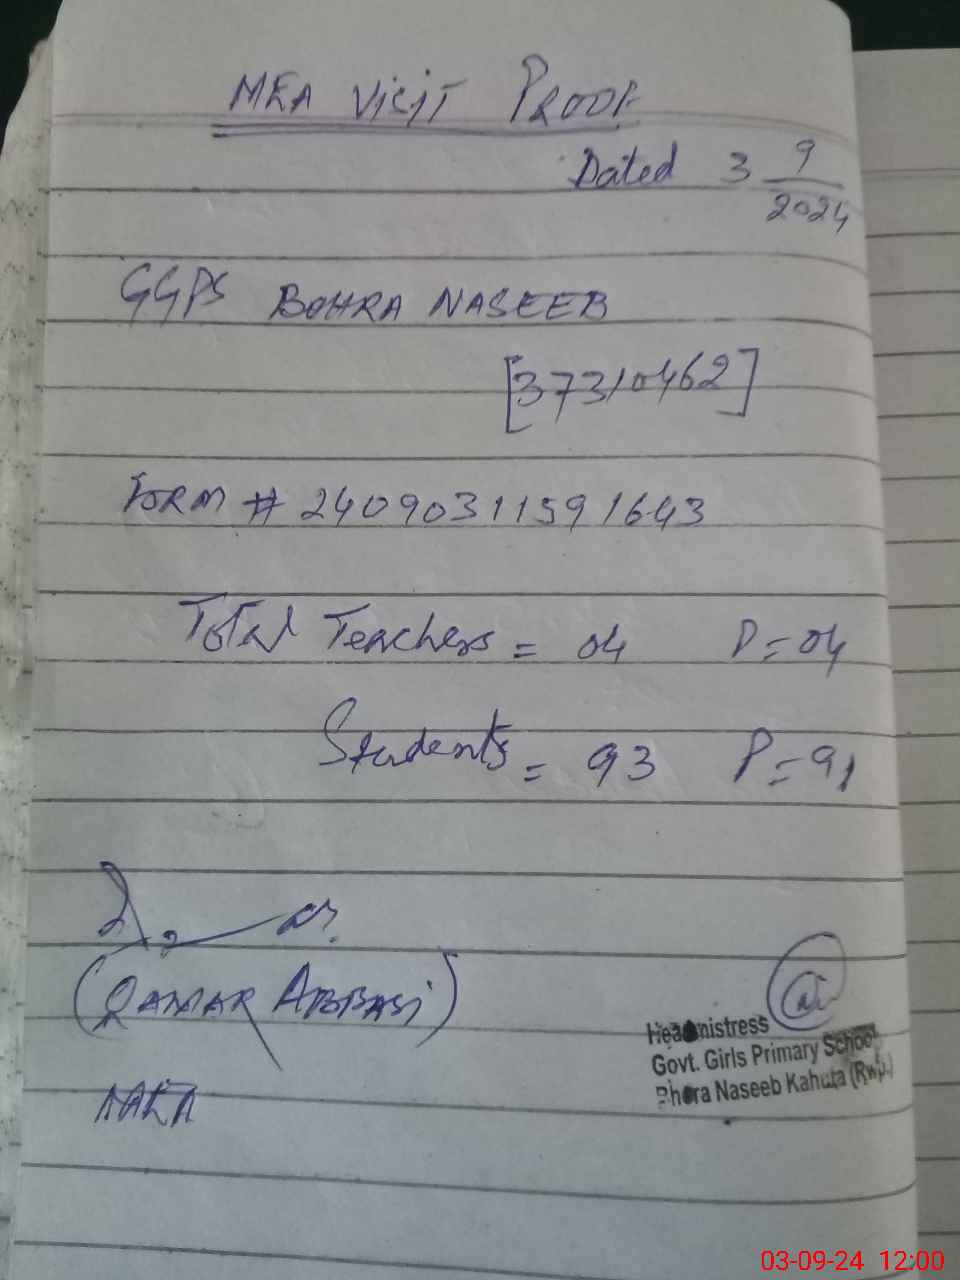 MEA VISIT PROOF
Dated 3 9/2024
GGPS BOHRA NASEEB
[37310462]
FORM # 24090311591643
Total Teachers = 04 P=04
Students = 93 P=91
(QAMAR ABBASI)
MEA
Headmistress
Govt. Girls Primary School
Bhora Naseeb Kahuta (Rwp.)
03-09-24 12:00